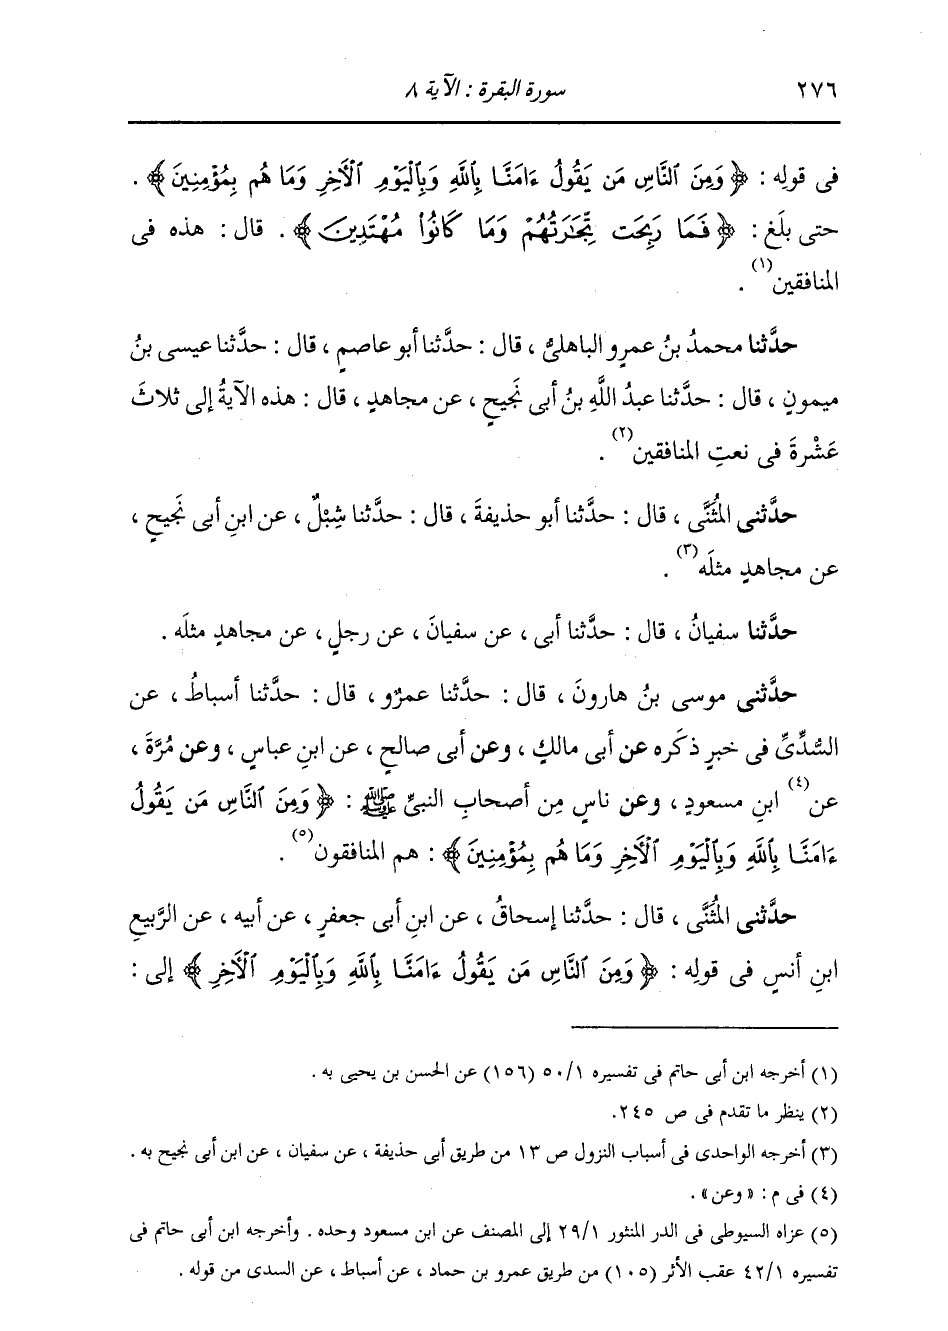 ٢٧٦ سورة البقرة : الآية ٨
فى قولِه : ﴿ وَمِنَ ٱلنَّاسِ مَن يَقُولُ ءَامَنَّا بِٱللَّهِ وَبِٱلْيَوْمِ ٱلْأَخِرِ وَمَا هُم بِمُؤْمِنِينَ ﴾ .
حتى بلَغ : ﴿ فَمَا رَبِحَت تِّجَٰرَتُهُمْ وَمَا كَانُوا۟ مُهْتَدِينَ ﴾ . قال : هذه فى
المنافقين(١) .
حدَّثنا محمدُ بنُ عمرٍو الباهلىُّ ، قال : حدَّثنا أبو عاصمٍ ، قال : حدَّثنا عيسى بنُ
ميمونٍ ، قال : حدَّثنا عبدُ اللَّهِ بنُ أبى نَجيحٍ ، عن مجاهدٍ ، قال : هذه الآيةُ إلى ثلاثَ
عَشْرةَ فى نعتِ المنافقين(٢) .
حدَّثنى المُثَنَّى ، قال : حدَّثنا أبو حذيفةَ ، قال : حدَّثنا شِبْلٌ ، عن ابنِ أبى نَجيحٍ ،
عن مجاهدٍ مثلَه(٣) .
حدَّثنا سفيانُ ، قال : حدَّثنا أبى ، عن سفيانَ ، عن رجلٍ ، عن مجاهدٍ مثلَه .
حدَّثنى موسى بنُ هارونَ ، قال : حدَّثنا عمرٌو ، قال : حدَّثنا أسباطُ ، عن
السُّدِّىِّ فى خبرٍ ذكَره عن أبى مالكٍ ، وعن أبى صالحٍ ، عن ابنِ عباسٍ ، وعن مُرَّةَ ،
عن(٤) ابنِ مسعودٍ ، وعن ناسٍ مِن أصحابِ النبىِّ ﷺ : ﴿ وَمِنَ ٱلنَّاسِ مَن يَقُولُ
ءَامَنَّا بِٱللَّهِ وَبِٱلْيَوْمِ ٱلْأَخِرِ وَمَا هُم بِمُؤْمِنِينَ ﴾ : هم المنافقون(٥) .
حدَّثنى المُثَنَّى ، قال : حدَّثنا إسحاقُ ، عن ابنِ أبى جعفرٍ ، عن أبيه ، عن الرَّبيعِ
ابنِ أنسٍ فى قولِه : ﴿ وَمِنَ ٱلنَّاسِ مَن يَقُولُ ءَامَنَّا بِٱللَّهِ وَبِٱلْيَوْمِ ٱلْأَخِرِ ﴾ إلى :
(١) أخرجه ابن أبى حاتم فى تفسيره ٥٠/١ (١٥٦) عن الحسن بن يحيى به .
(٢) ينظر ما تقدم فى ص ٢٤٥.
(٣) أخرجه الواحدى فى أسباب النزول ص ١٣ من طريق أبى حذيفة ، عن سفيان ، عن ابن أبى نجيح به .
(٤) فى م : « وعن» .
(٥) عزاه السيوطى فى الدر المنثور ٢٩/١ إلى المصنف عن ابن مسعود وحده . وأخرجه ابن أبى حاتم فى
تفسيره ٤٢/١ عقب الأثر (١٠٥) من طريق عمرو بن حماد ، عن أسباط ، عن السدى من قوله .